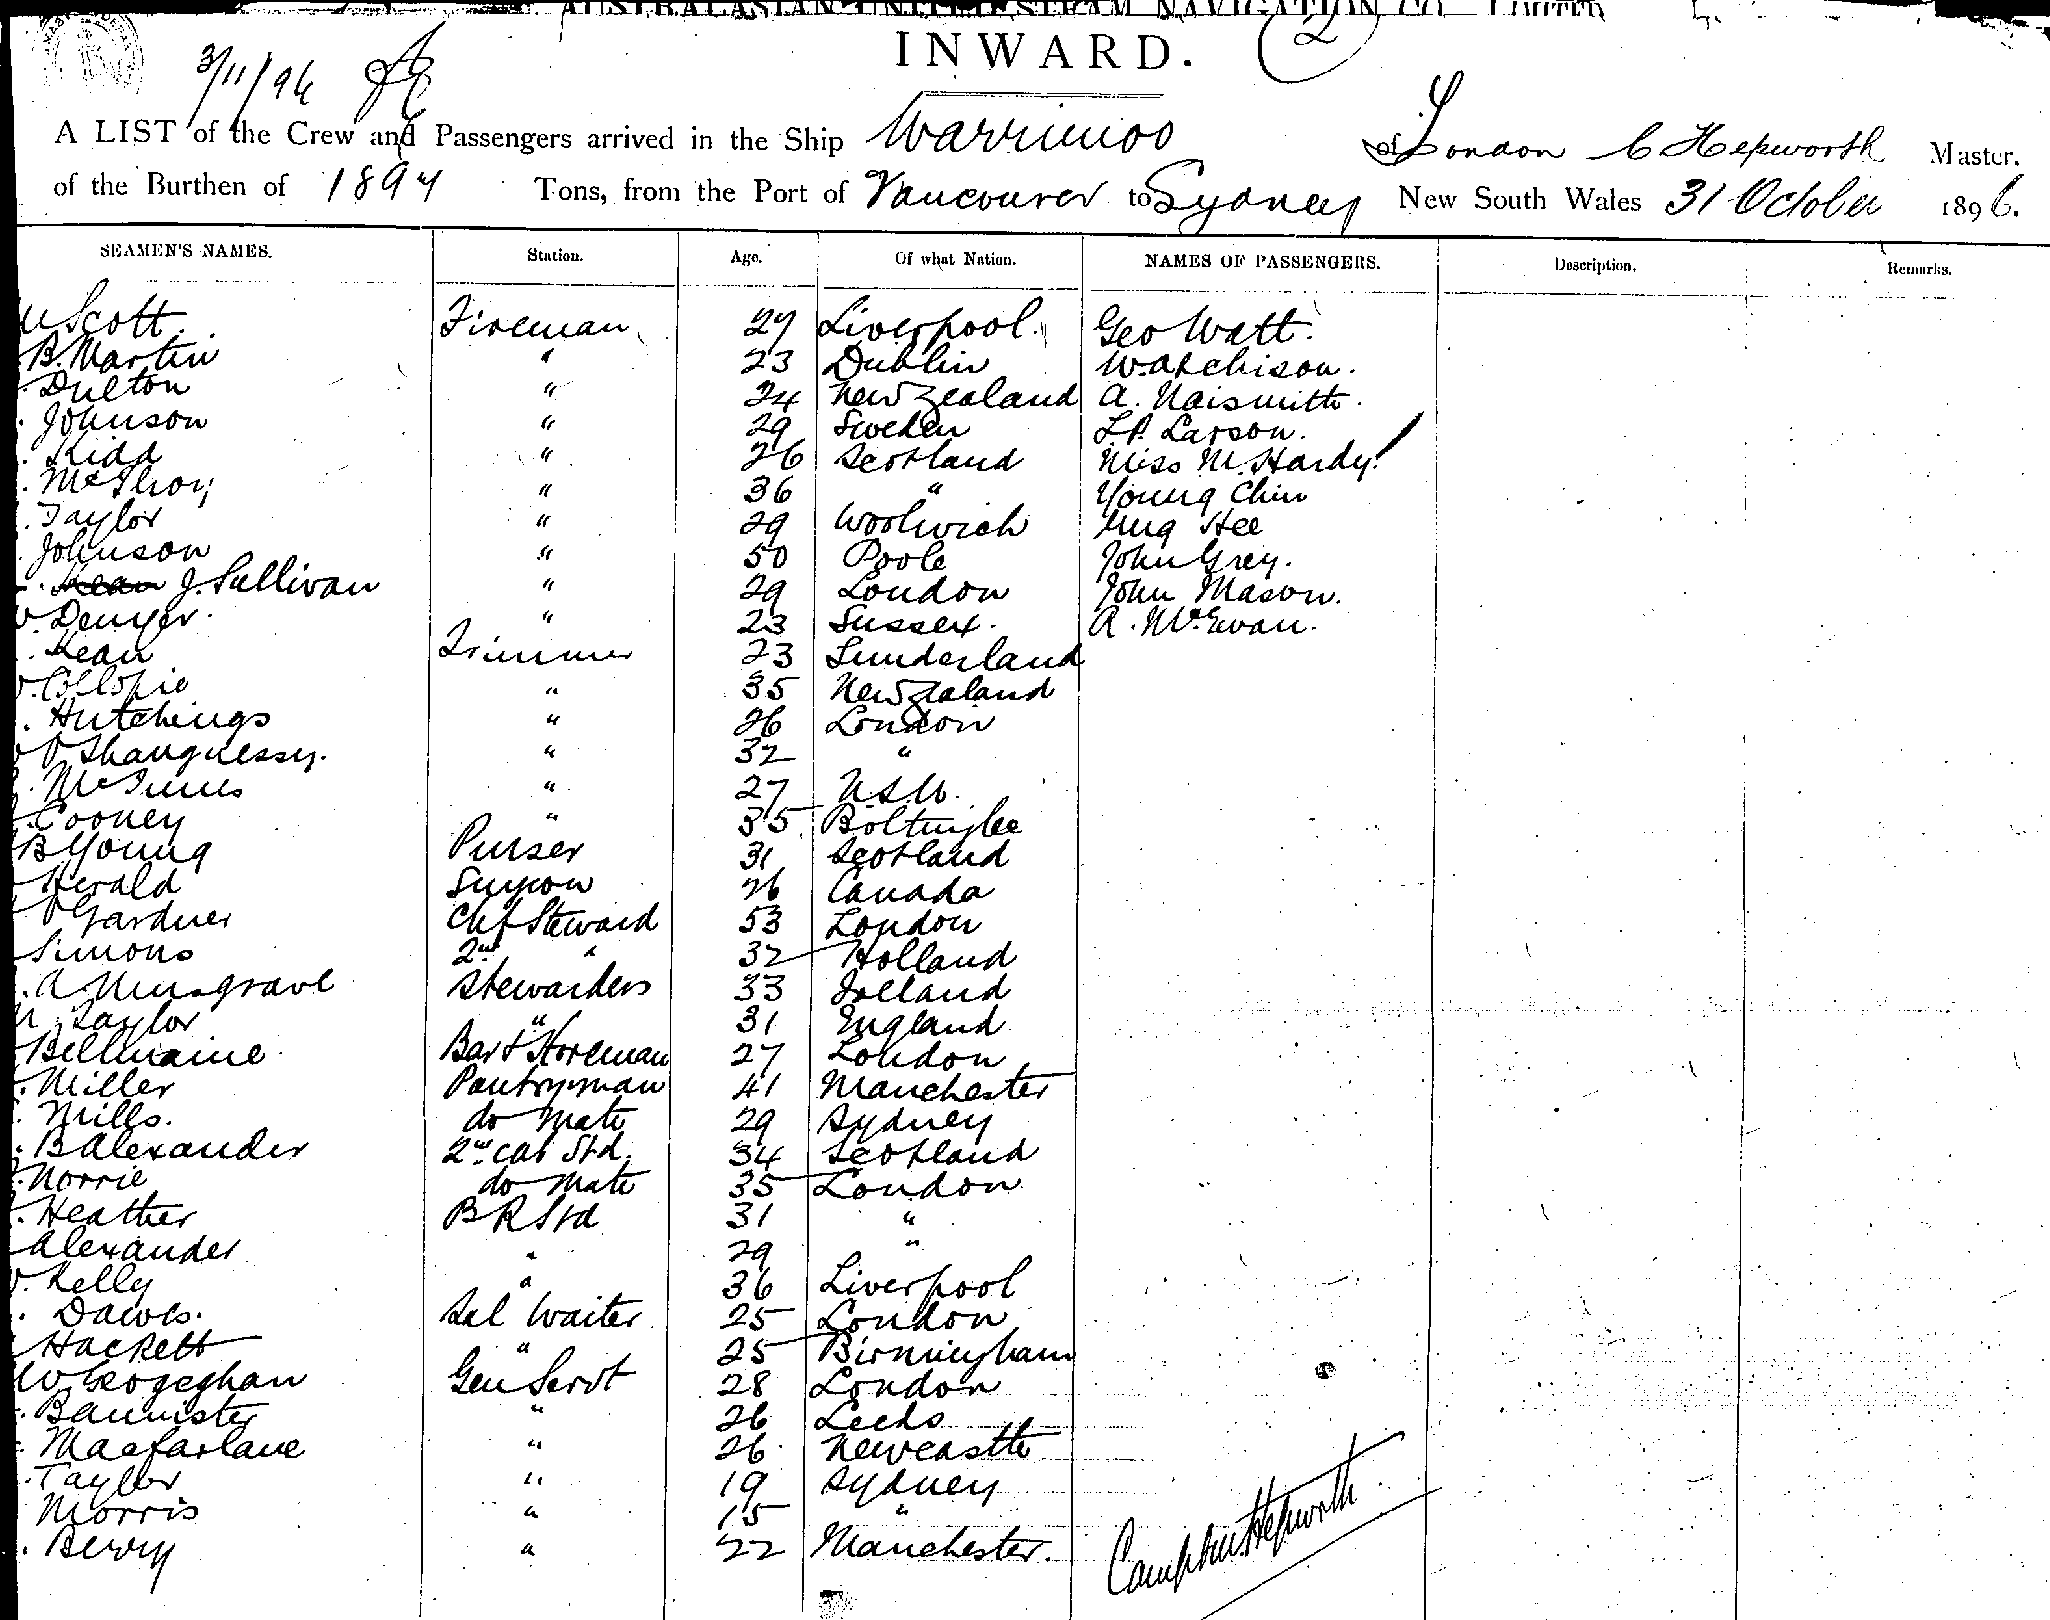 AUSTRALASIAN UNITED STEAM NAVIGATION CO. LIMITED
2
INWARD.
3/11/96
A LIST of the Crew and Passengers arrived in the Ship Warrimoo of London C Hepworth Master.
of the Burthen of 1894 Tons, from the Port of Vancouver to Sydney New South Wales 31 October 1896.
SEAMEN'S NAMES. Station. Age. Of what Nation. NAMES OF PASSENGERS. Description. Remarks.
Scott. Fireman 27 Liverpool. Geo Watt.
B. Martin " 23 Dublin W. Atchison.
Dulton " 24 New Zealand A. Naismith.
Johnson " 29 Sweden L.P. Larson.
Kidd " 26 Scotland Miss M. Hardy.
McIlroy " 36 " Young Chin
Taylor " 29 Woolwich Hee
Johnson " 50 Poole John Grey.
J. Sullivan " 29 London John Mason.
Denyer. " 23 Sussex. A. McEwan.
Kean Trimmer 23 Sunderland
" 35 New Zealand
Hutchings " 26 London
O'Shaugnessy. " 32 "
McInnes " 27 N.S.W.
Cooney " 35
B Young Purser 31 Scotland
Herald Surgeon 26 Canada
Gardner Chf Steward 53 London
Simons 2nd " 32 Holland
A Musgrave Stewardess 33 Ireland
Taylor " 31 England
Bellmaine Bar & Storeman 27 London
Miller Pantryman 41 Manchester
Mills. do Mate 29 Sydney
B Alexander 2nd Cab Std. 34 Scotland
Norrie do Mate 35 London
Heather B R Std 31 "
Alexander " 29 "
Kelly " 36 Liverpool
Dawes. Sal Waiter 25 London
Hackett " 25 Birmingham
W Geogeghan Gen Servt 28 London
Bannister " 26 Leeds
Macfarlane " 26 Newcastle
Taylor " 19 Sydney
Morris " 15 "
Berry " 22 Manchester.
Campbell Hepworth